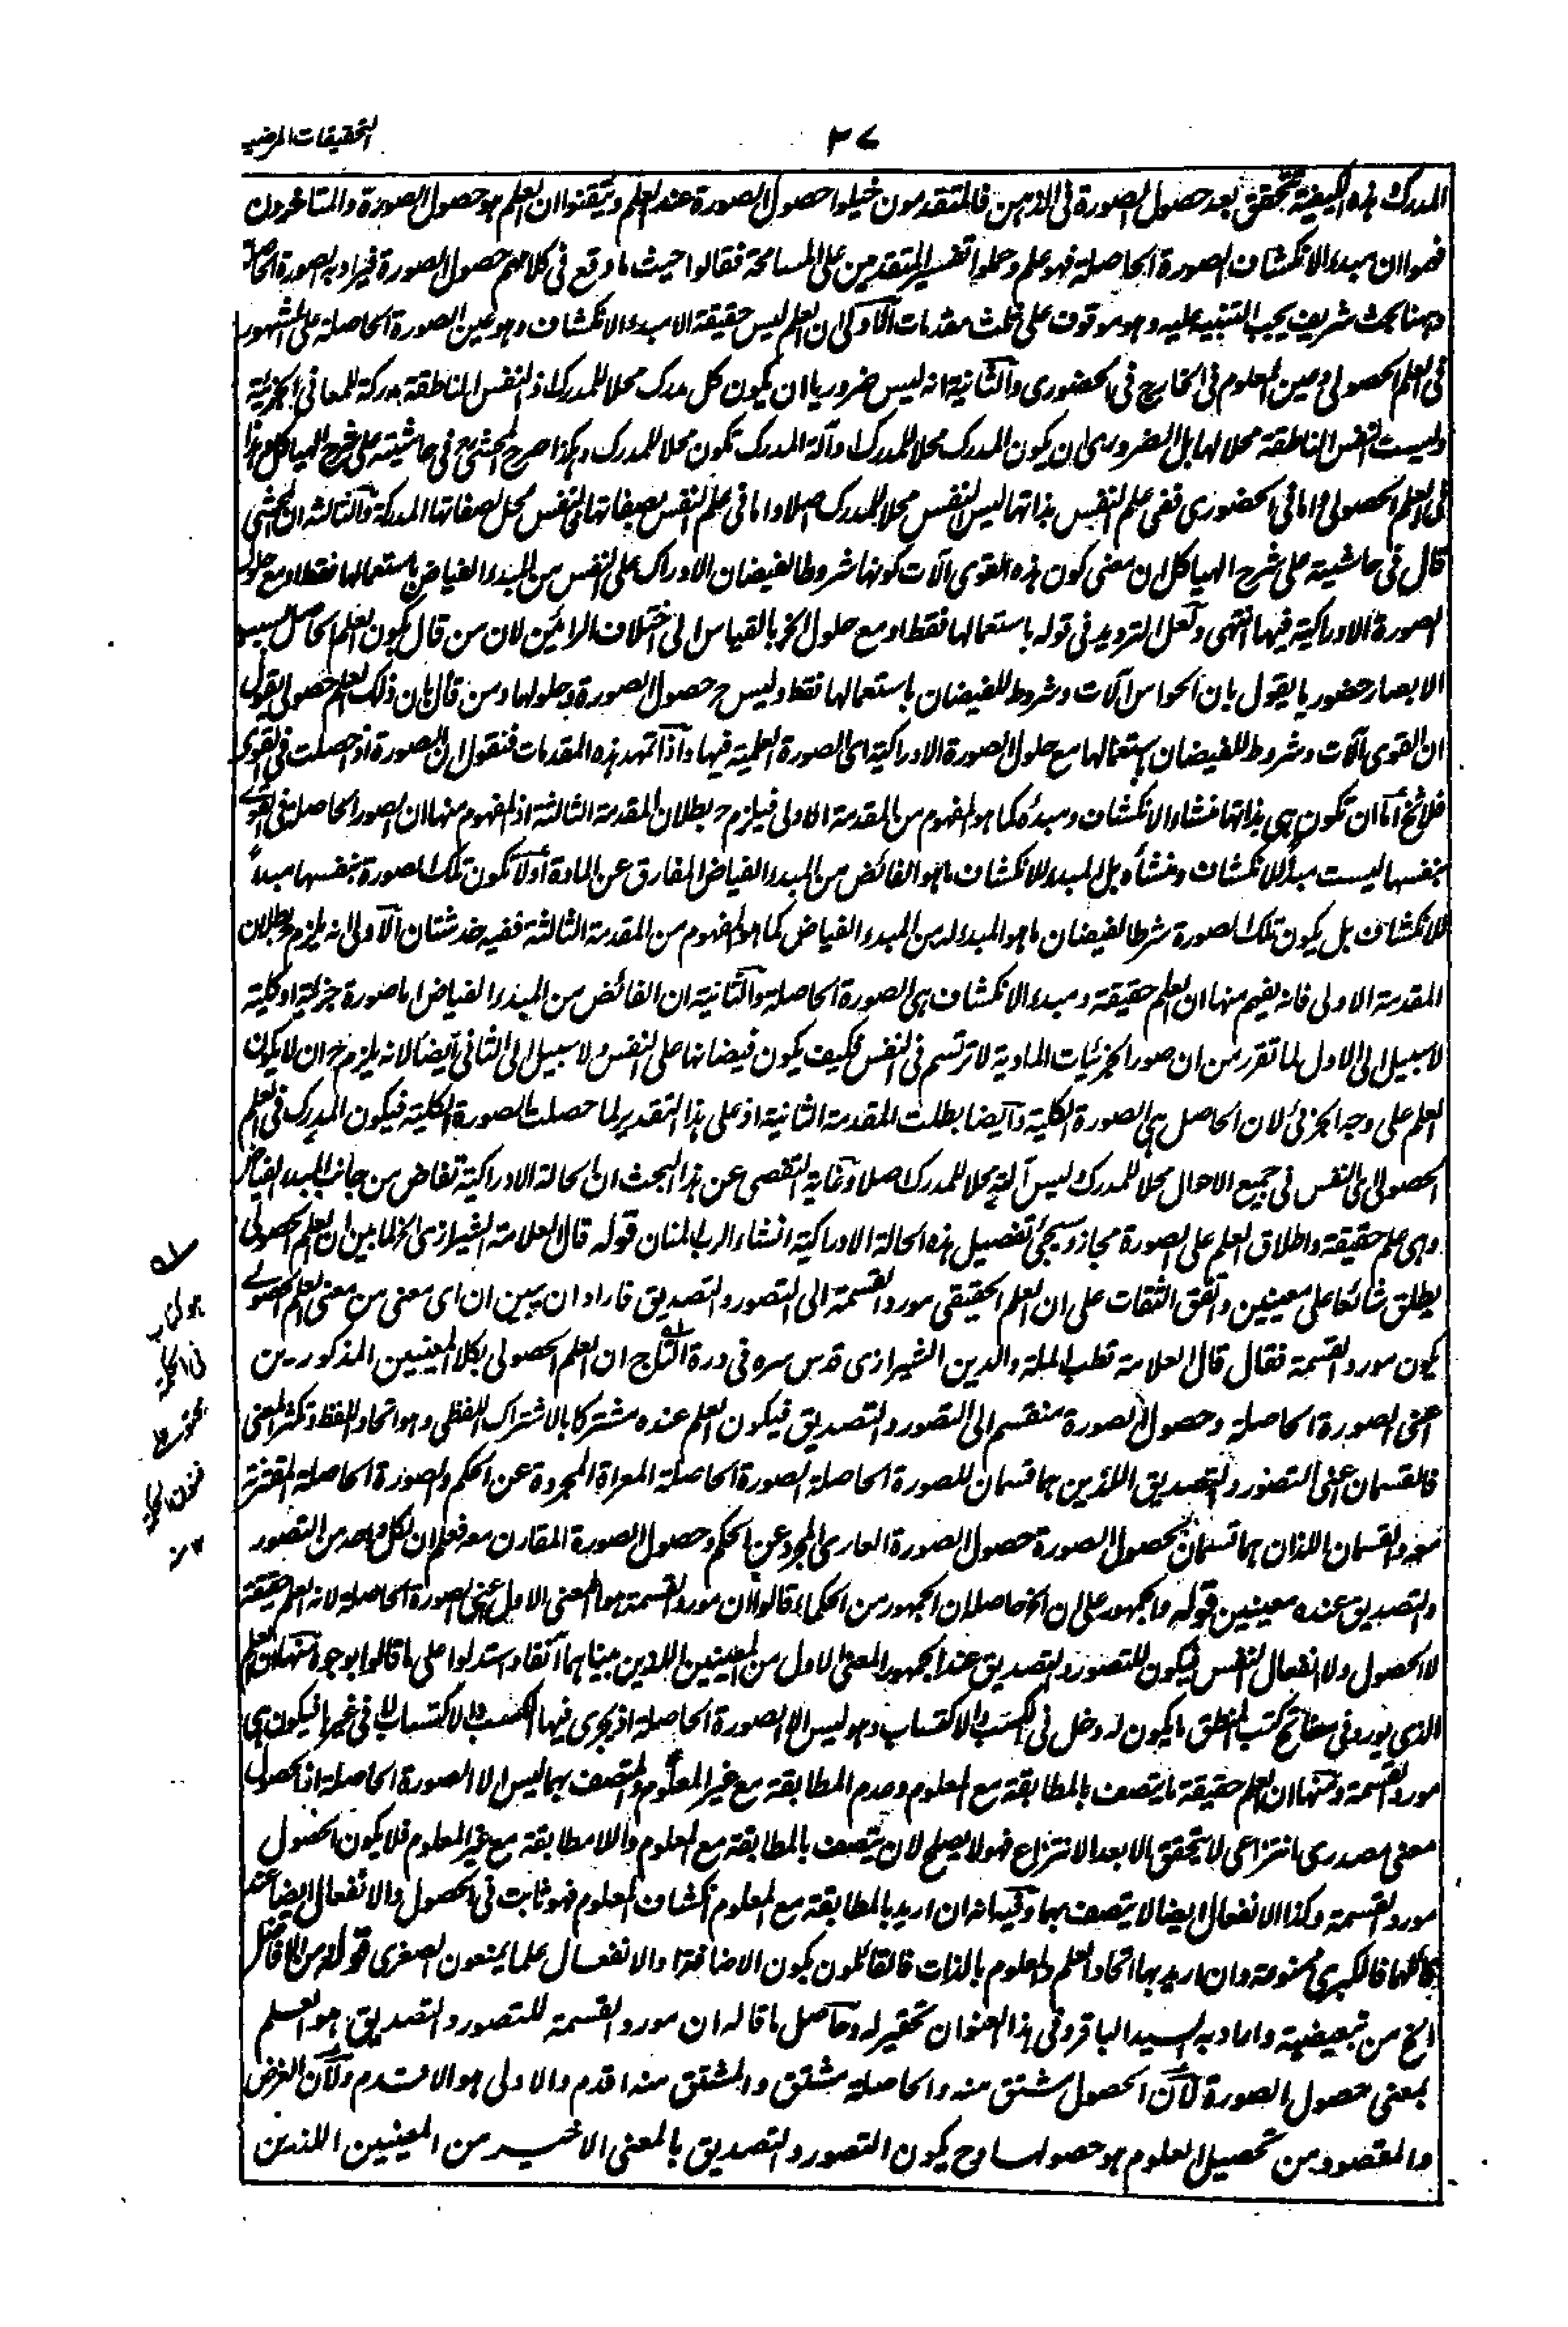 التحقیقات المرضیه
۳۷
المدرک هذه الکیفیة تتحقق بعد حصول الصورة فی الذهن فالمتقدمون خیلوا حصول الصورة عند العلم وتیقنوا ان العلم هو حصول الصورة والمتاخرون
فهموا ان مبدء الانکشاف الصورة الحاصلة فهو علم وحملوا تفسیر المتقدمین علی المسامحة فقالوا حیث ما وقع فی کلامهم حصول الصورة فیراد به الصورة الحاصلة
وههنا بحث شریف یجب التنبیه علیه وهو موقوف علی ثلث مقدمات الاولی ان العلم لیس حقیقة الا مبدء الانکشاف وهو عین الصورة الحاصلة علی المشهور
فی العلم الحصولی وعین المعلوم فی الخارج فی الحضوری والثانیة انه لیس ضروریا ان یکون کل مدرک محلا للمدرک اذ النفس الناطقة مدرکة للمعانی الجزئیة
ولیست النفس الناطقة محلا لها بل الضروری ان یکون المدرک محلا للمدرک او آلة المدرک تکون محلا للمدرک وهکذا صرح المحشی فی حاشیته علی شرح الهیاکل هذا
فی العلم الحصولی واما فی الحضوری ففی علم النفس بذاتها لیس النفس محلا للمدرک اصلا واما فی علم النفس بصفاتها فالنفس محل لصفاتها المدرکة والثالثة ان المحشی
قال فی حاشیته علی شرح الهیاکل ان معنی کون هذه القوی آلات کونها شروطا لفیضان الادراک علی النفس من المبدء الفیاض باستعمالها فقط او مع حلول
الصورة الادراکیة فیها انتهی ولعل التردید فی قوله باستعمالها فقط او مع حلول الخ بالقیاس الی اختلاف الرائین لان من قال یکون العلم الحاصل بسبب
الابصار حضوریا یقول بان الحواس آلات وشروط للفیضان باستعمالها فقط ولیس ح حصول الصورة وحلولها ومن قال بان ذلک العلم حصولی یقول
ان القوی آلات وشروط للفیضان باستعمالها مع حلول الصورة الادراکیة ای الصورة العلمیة فیها واذا تمهد هذه المقدمات فنقول ان الصورة اذا حصلت فی القوی
فلا یخ اما ان تکون هی بذاتها منشاء الانکشاف ومبدئه کما هو المفهوم من المقدمة الاولی فیلزم ح بطلان المقدمة الثالثة اذ المفهوم منها ان الصور الحاصلة فی القوی
بنفسها لیست مبدأ للانکشاف ومنشأه بل المبدء للانکشاف ما هو الفائض من المبدء الفیاض المفارق عن المادة أو لا تکون تلک الصورة بنفسها مبدءً
للانکشاف بل یکون تلک الصورة شرطا لفیضان ما هو المبدء له من المبدء الفیاض کما هو المفهوم من المقدمة الثالثة ففیه خدشتان الاولی انه یلزم ح بطلان
المقدمة الاولی فانه یفهم منها ان العلم حقیقة ومبدء الانکشاف هی الصورة الحاصلة والثانیة ان الفائض من المبدء الفیاض اما صورة جزئیة او کلیة
لا سبیل الی الاول لما تقرر من ان صور الجزئیات المادیة لا ترتسم فی النفس فکیف یکون فیضانها علی النفس ولا سبیل الی الثانی ایضا لانه یلزم ح ان لا یکون
العلم علی وجه الجزئی لان الحاصل هی الصورة الکلیة وایضا بطلت المقدمة الثانیة اذ علی هذا التقدیر لما حصلت الصورة الکلیة فیکون المدرک فی العلم
الحصولی ای النفس فی جمیع الاحوال محلا للمدرک لیس آلته محلا للمدرک اصلا وغایة التفصی عن هذا البحث ان الحالة الادراکیة تفاض من جانب المبدء الفیاض
وهی علم حقیقة واطلاق العلم علی الصورة مجاز وسیجئ تفصیل هذه الحالة الادراکیة انشاء الرب المنان قوله قال العلامة الشیرازی الخ لما بین ان العلم الحصولی
یطلق شائعا علی معنیین واتفق الثقات علی ان العلم الحقیقی مورد القسمة الی التصور والتصدیق فاراد ان یبین ان ای معنی من معنی العلم الحصولی
یکون مورد القسمة فقال قال العلامة قطب الملة والدین الشیرازی قدس سره فی درة التاج ان العلم الحصولی بکلا المعنیین المذکورین
اعنی الصورة الحاصلة وحصول الصورة منقسم الی التصور والتصدیق فیکون العلم عنده مشترکا بالاشتراک اللفظی وهو اتحاد اللفظ وتکثر المعنی
فالقسمان اعنی التصور والتصدیق اللذین هما قسمان للصورة الحاصلة الصورة الحاصلة المعراة المجردة عن الحکم والصورة الحاصلة المقترنة
معه والقسمان اللذان هما قسمان لحصول الصورة حصول الصورة العاری المجرد عن الحکم وحصول الصورة المقارن معه فعلم ان لکل واحد من التصور
والتصدیق عنده معنیین قوله والجمهور علی ان الخ حاصله ان الجمهور من الحکماء قالوا ان مورد القسمة هو المعنی الاول اعنی الصورة الحاصلة لانه العلم حقیقة
لا الحصول ولا انفعال النفس فیکون للتصور والتصدیق عند الجمهور المعنی الاول من المعنیین اللذین بیناهما آنفا واستدلوا علی ما قالوا بوجوه منها ان العلم
الذی یورد فی مفاتح کتب المنطق ما یکون له دخل فی الکسب والاکتساب وهو لیس الا الصورة الحاصلة اذ یجری فیها الکسب والاکتساب لا فی غیرها فیکون هی
مورد القسمة ومنها ان العلم حقیقة ما یتصف بالمطابقة مع المعلوم وعدم المطابقة مع غیر المعلوم والمتصف بهما لیس الا الصورة الحاصلة اذ الحصول
معنی مصدری انتزاعی لا یتحقق الا بعد الانتزاع فهو لا یصلح لان یتصف بالمطابقة مع المعلوم واللا مطابقة مع غیر المعلوم فلا یکون الحصول
مورد القسمة وکذا الانفعال ایضا لا یتصف بهما وفیه انه ان ارید بالمطابقة مع المعلوم انکشاف المعلوم فهو ثابت فی الحصول والانفعال ایضا عند
قائلها فالکبری ممنوعة وان ارید بها اتحاد العلم والمعلوم بالذات فالقائلون بکون الاضافة او الانفعال علما یمنعون الصغری قوله من الافاضل
الخ من تبعیضیة واراد به السید الباقر وفی هذا العنوان تحقیر له وحاصل ما قاله ان مورد القسمة للتصور والتصدیق هو العلم
بمعنی حصول الصورة لان الحصول مشتق منه والحاصلة مشتق والمشتق منه اقدم والاولی هو الاقدم ولان الغرض
والمقصود من تحصیل العلوم هو حصولها وح یکون التصور والتصدیق بالمعنی الاخیر من المعنیین اللذین
هو کتاب
فی الحکمة